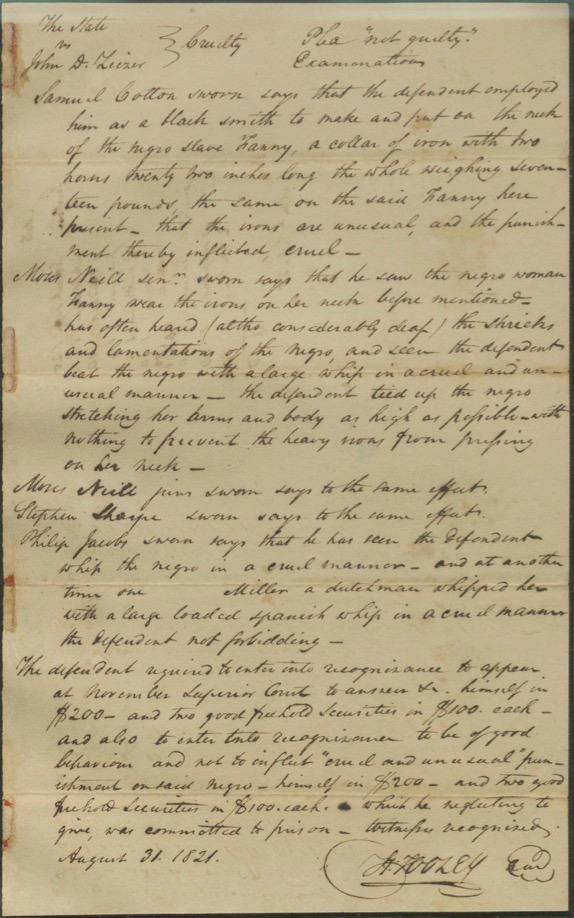 The State
vs } Cruelty Plea "not guilty."
John D. Tiezer Examinations
Samuel Cotton sworn says that the defendent employed
him as a black smith to make and put on the neck
of the negro slave Fanny, a collar of iron with two
horns twenty two inches long the whole weighing seven-
teen pounds, the same on the said Fanny here
present - that the irons are unusual, and the punish-
ment thereby inflicted, cruel -
Moses Neill senr. sworn says that he saw the negro woman
Fanny wear the irons on her neck before mentioned -
has often heard (altho considerably deaf) the shrieks
and lamentations of the negro, and seen the defendent
beat the negro with a large whip in a cruel and un-
usual manner - the defendent tied up the negro
stretching her arms and body as high as possible - with
nothing to prevent the heavy irons from pressing
on her neck -
Moses Neill junr sworn says to the same effect.
Stephen Sharpe sworn says to the same effect.
Philip Jacobs sworn says that he has seen the defendent
whip the negro in a cruel manner - and at another
time one Miller a dutchman whipped her
with a large loaded spanish whip in a cruel manner
the defendent not forbidding -
The defendent required to enter into recognizance to appear
at November Superior Court to answer &c. himself in
$200 - and two good freehold securities in $100. each -
and also to enter into recognizance to be of good
behaviour and not to inflict "cruel and unusual" pun-
ishment on said negro - himself in $200 - and two good
freehold securities in $100. each. - which he neglecting to
give, was committed to prison - Witnesses recognised.
August 31. 1821.
H. TOOLEY